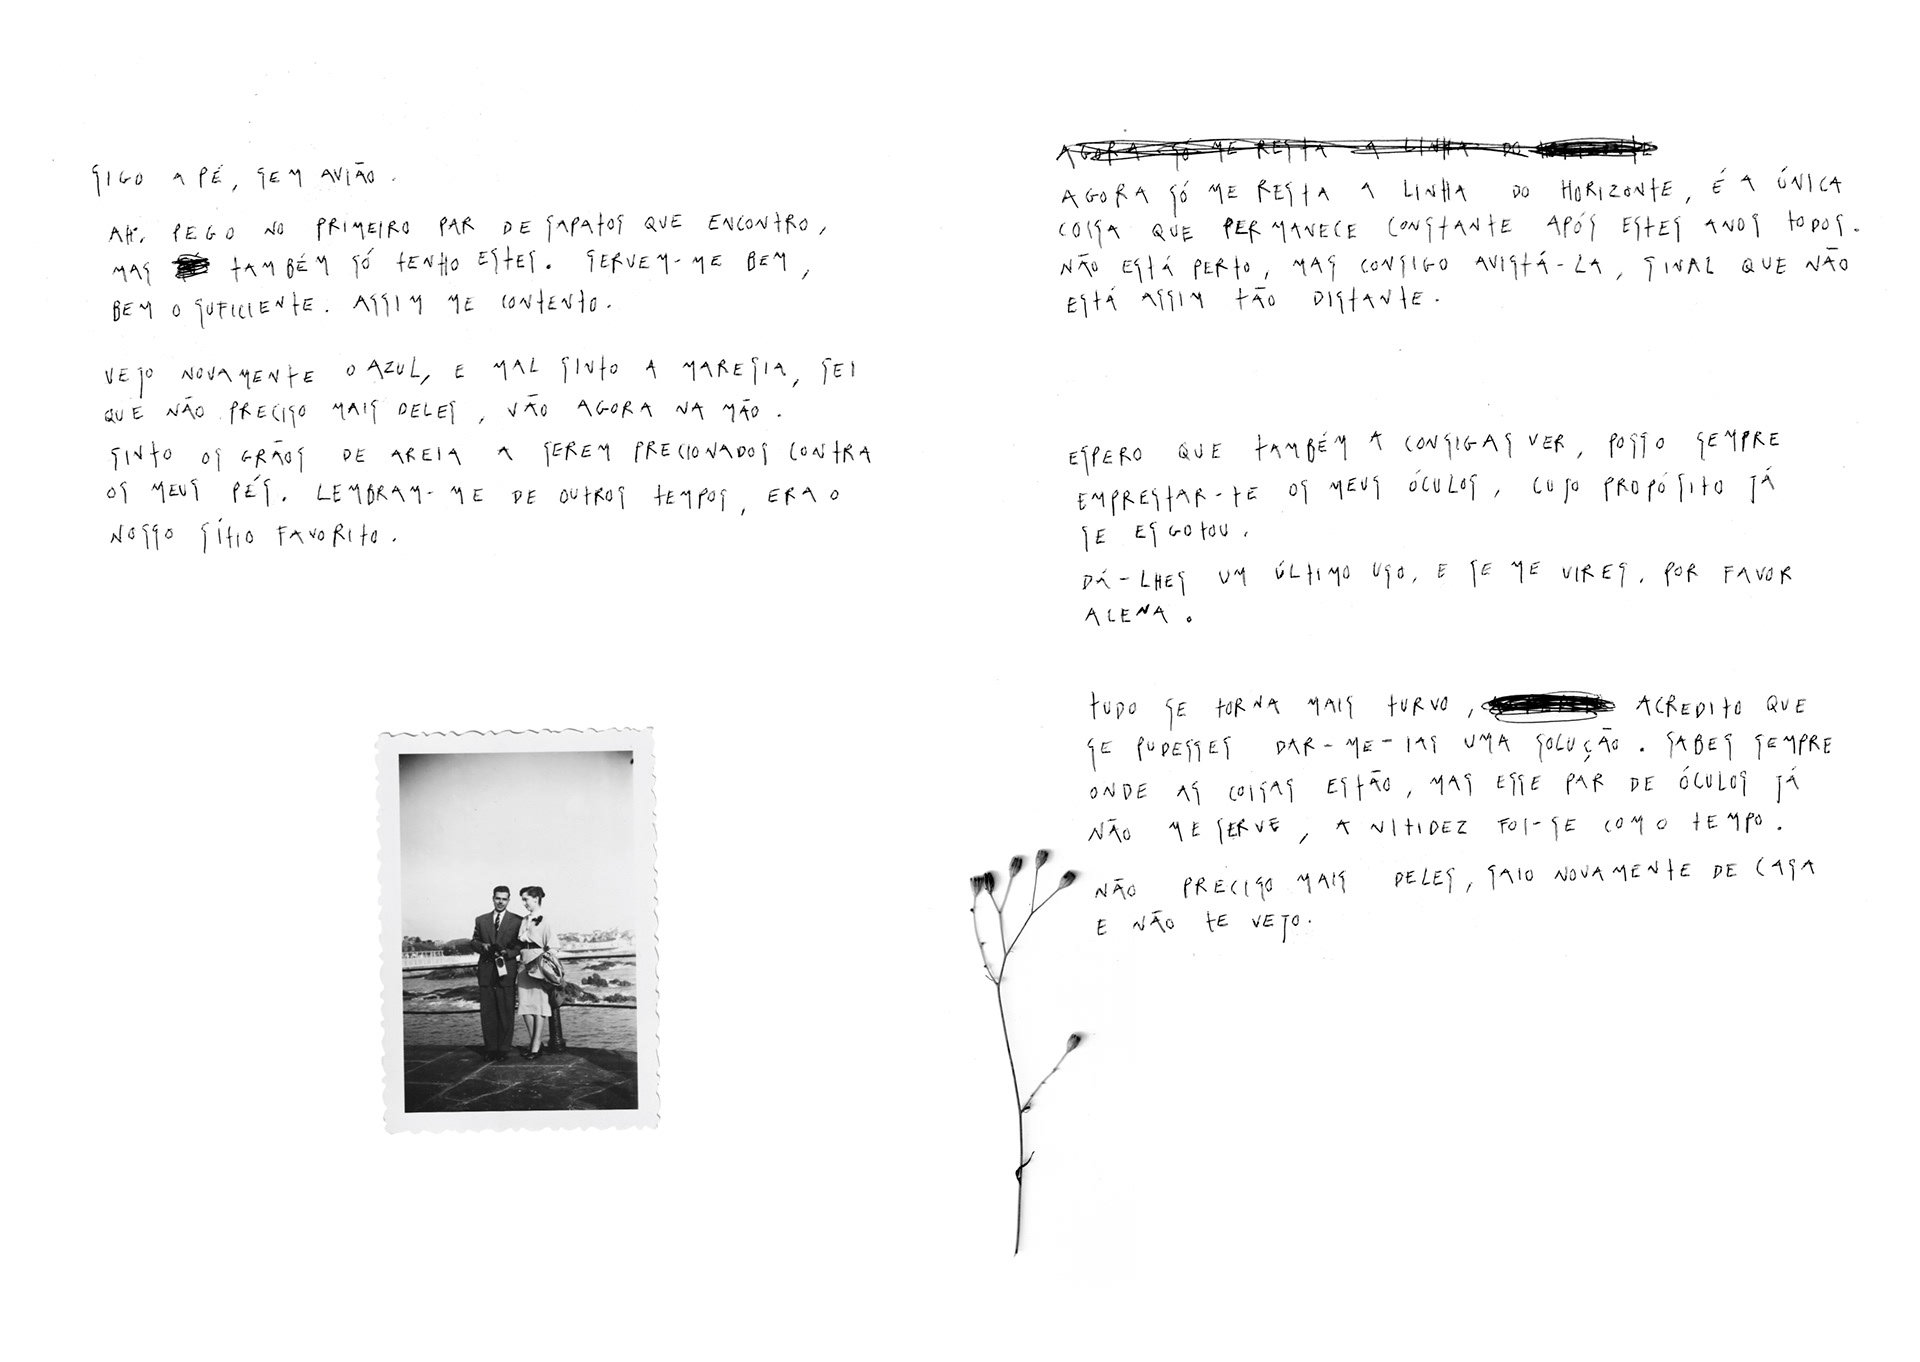 SIGO A PÉ, SEM AVIÃO.
AH, PEGO NO PRIMEIRO PAR DE SAPATOS QUE ENCONTRO,
MAS TAMBÉM SÓ TENHO ESTES. SERVEM-ME BEM,
BEM O SUFICIENTE. ASSIM ME CONTENTO.
VEJO NOVAMENTE O AZUL, E MAL SINTO A MARESIA, SEI
QUE NÃO PRECISO MAIS DELES, VÃO AGORA NA MÃO.
SINTO OS GRÃOS DE AREIA A SEREM PRECIONADOS CONTRA
OS MEUS PÉS. LEMBRAM-ME DE OUTROS TEMPOS, ERA O
NOSSO SÍTIO FAVORITO.
AGORA SÓ ME RESTA A LINHA DO
AGORA SÓ ME RESTA A LINHA DO HORIZONTE, É A ÚNICA
COISA QUE PERMANECE CONSTANTE APÓS ESTES ANOS TODOS.
NÃO ESTÁ PERTO, MAS CONSIGO AVISTÁ-LA, SINAL QUE NÃO
ESTÁ ASSIM TÃO DISTANTE.
ESPERO QUE TAMBÉM A CONSIGAS VER, POSSO SEMPRE
EMPRESTAR-TE OS MEUS ÓCULOS, CUJO PROPÓSITO JÁ
SE ESGOTOU.
DÁ-LHES UM ÚLTIMO USO, E SE ME VIRES, POR FAVOR
ACENA.
TUDO SE TORNA MAIS TURVO, ACREDITO QUE
SE PUDESSES DAR-ME-IAS UMA SOLUÇÃO. SABES SEMPRE
ONDE AS COISAS ESTÃO, MAS ESSE PAR DE ÓCULOS JÁ
NÃO ME SERVE, A NITIDEZ FOI-SE COM O TEMPO.
NÃO PRECISO MAIS DELES, SAIO NOVAMENTE DE CASA
E NÃO TE VEJO.